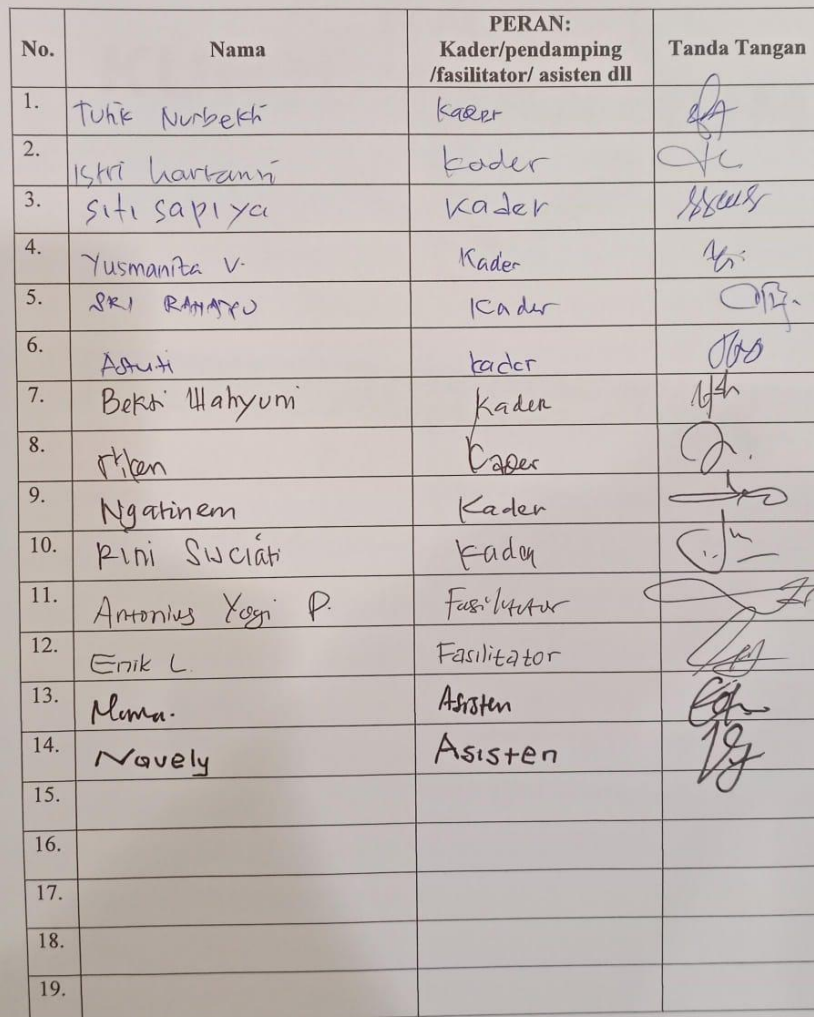 No. Nama PERAN: Kader/pendamping /fasilitator/ asisten dll Tanda Tangan
1. Tutik Nurbekti Kader
2. Istri hartanti kader
3. Siti sapiya Kader
4. Yusmanita V. Kader
5. SRI RAHAYU Kader
6. Astuti kader
7. Bekti Wahyuni Kader
8. Kader
9. Ngatinem Kader
10. Rini Suciati Kader
11. Antonius Yogi P. Fasilitator
12. Enik L. Fasilitator
13. Asisten
14. Navely Asisten
15.
16.
17.
18.
19.